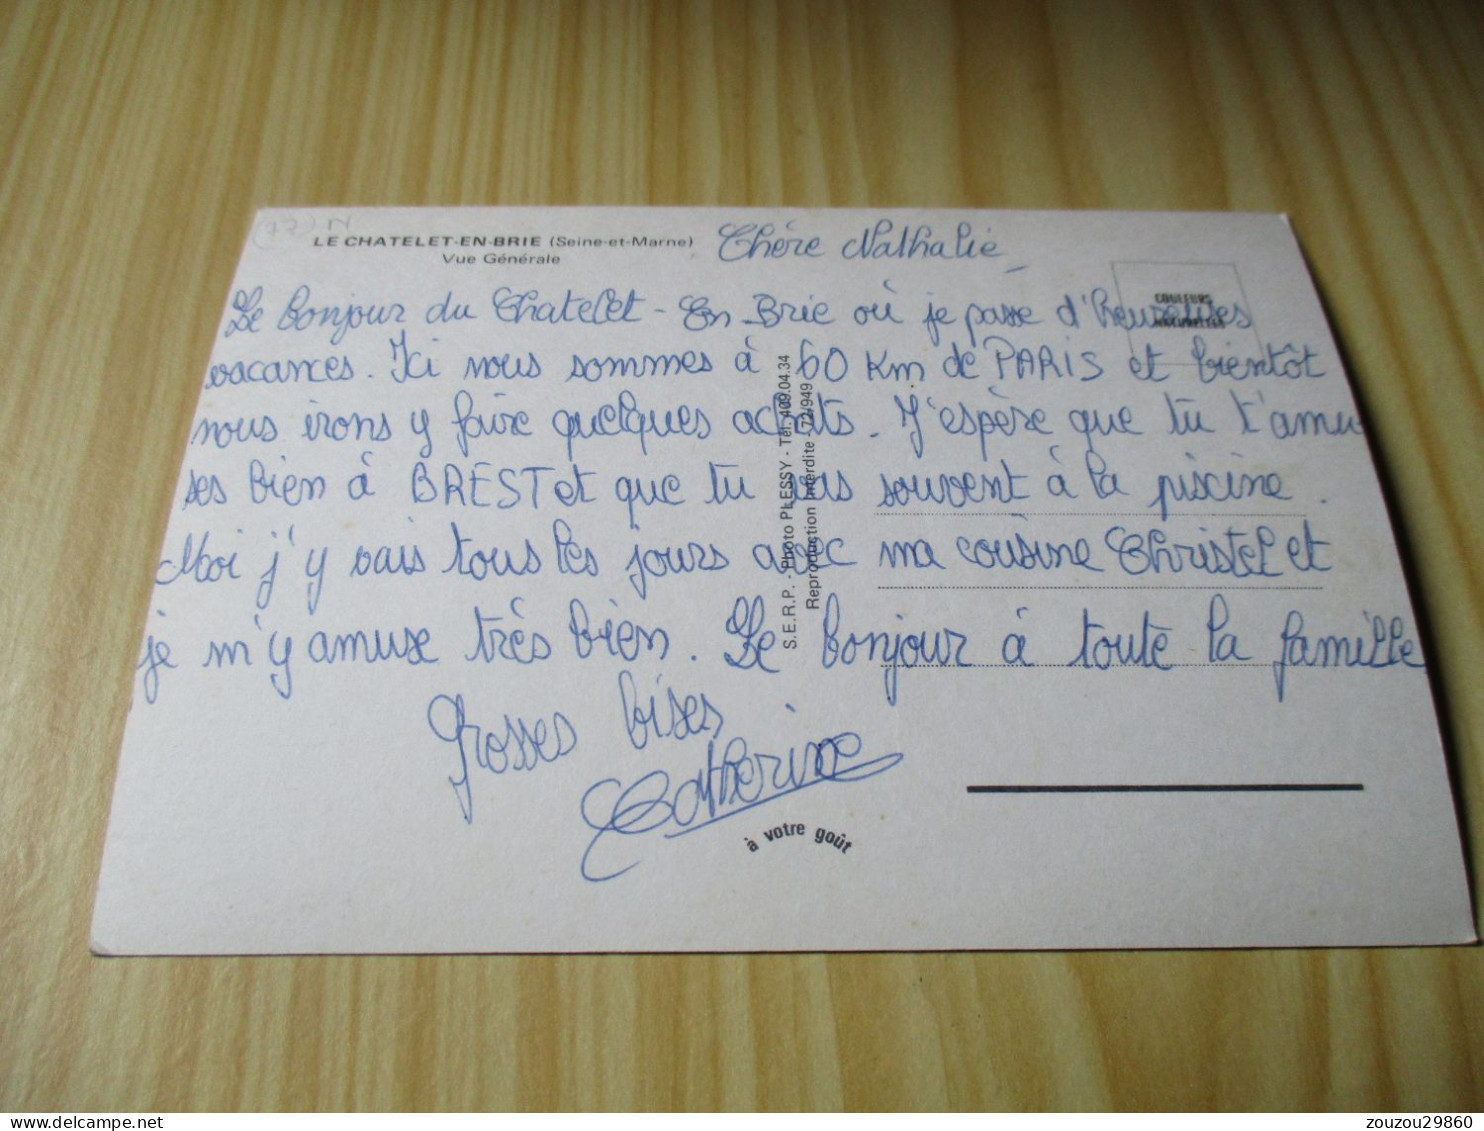 (77) N
LE CHATELET-EN-BRIE (Seine-et-Marne)
Vue Générale
Chère Nathalie
COULEURS
NATURELLES
Le bonjour du Chatelet-En-Brie où je passe d'heureuses
vacances. Ici nous sommes à 60 km de PARIS et bientôt
nous irons y faire quelques achats. J'espère que tu t'amu
ses bien à BREST et que tu vas souvent à la piscine.
Moi j'y vais tous les jours avec ma cousine Christel et
je m'y amuse très bien. Le bonjour à toute la famille
Grosses bises
Catherine
S.E.R.P. - Photo PLESSY - Tél. 409.04.34
Reproduction Interdite - 72/949
à votre goût
zouzou29860